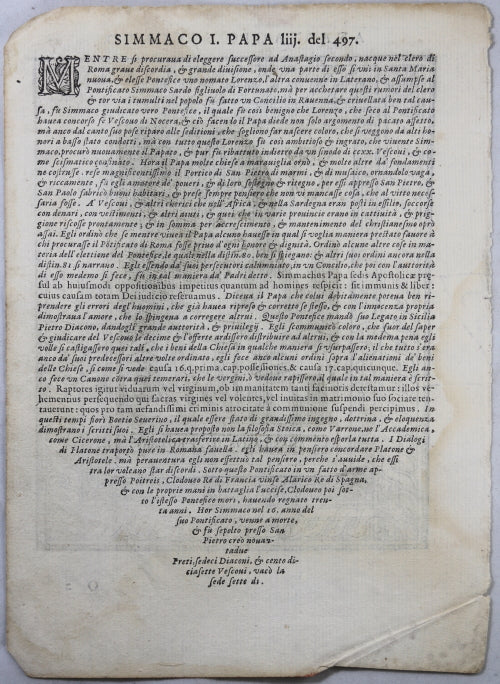 SIMMACO I. PAPA liij. del 497.
MENTRE si procuraua di eleggere successore ad Anastagio secondo, nacque nel clero di
Roma graue discordia, & grande diuisione, onde vna parte di esso si vnì in Santa Maria
nuoua, & elesse Pontefice vno nomato Lorenzo, l'altra conuenne in Laterano, & assumpse al
Pontificato Simmaco Sardo figliuolo di Fortunato, mà per acchetare questi rumori del clero
& tor via i tumulti nel popolo fù fatto vn Concilio in Rauenna, & criuellata ben tal cau
sa, fù Simmaco giudicato vero Pontefice, il quale fù così benigno che Lorenzo, che seco al Pontificato
hauea concorso fè Vescouo di Nocera, & ciò facendo il Papa diede non solo argomento di pacato assetto,
mà anco dal canto suo pose riparo alle seditioni, che sogliono far nascere coloro, che si veggono da alti ho
nori a basso stato condotti, mà con tutto questo Lorenzo fù così ambitioso & ingrato, che viuente Sim-
maco, procurò nuouamente il Papato, & pur fù ributtato indietro da vn sinodo di cxx. Vescoui, & co-
me scismatico confinato. Hora il Papa molte chiese a marauiglia ornò, & molte altre da' fondamenti
ne costrusse. rese magnificentissimo il Portico di San Pietro di marmi, & di musaico, ornandolo vaga,
& riccamente, fù egli amatore de' poueri, & di loro sostegno & ritegno, per essi appresso San Pietro, &
San Paolo fabricò buoni habitari, & prese sempre pensiero che non vi mancasse cosa, che al vitto neces-
saria fosse. A' Vescoui, & altri cherici che nell'Africa, & nella Sardegna eran posti in essilio, soccorse
con denari, con vestimenti, & altri aiuti, & quei che in varie prouincie erano in cattiuità, & prig-
gione riscosse prontamente, & in somma per accrescimento, & mantenimento del christianesmo oprò
assai. Egli ordinò che se mentre viuea il Papa alcuno hauesse in qual si voglia maniera prestato fauore à
chi procurasse il Pōtificato di Roma fosse priuo d'ogni honore & dignità. Ordinò alcune altre cose in ma-
teria dell'elettione del Pontefice, le quali nella distin.80. ben si spiegano; & altri suoi ordini ancora nella
distin.81 si narrano. Egli essendo da' suoi persecutori calunniato, in vn Concilio, che poi con l'auttorità
di esso medemo si fece, fù in tal maniera da' Padri detto. Simmachus Papa sedis Apostolicæ præ-
sul ab huiusmodi oppositionibus impetitus quantum ad homines respicit: sit immunis & liber:
cuius causam totam Dei iudicio reseruamus. Diceua il Papa che colui debitamente potena ben ri-
prendere gli errori degl'huomini, che già hauea ripreso & corretto se stesso, & con l'innocenza propria
dimostraua l'amore, che lo spingena a correggere altrui. Questo Pontefice mandò suo Legato in Sicilia
Pietro Diacono, dandogli grande auttorità, & priuilegij. Egli scommunicò coloro, che fuor del saper
& giudicare del Vescouo le decime & l'offerte ardissero distribuire ad altrui, & con la medema pena egli
volle si castigassero quei tali, che i beni della Chiesa in qualche maniera si vsurpassero, il che tutto s'era
anco da' suoi predecessori altre volte ordinato, egli fece anco alcuni ordini sopra l'alienationi de' beni
delle Chiese, sì come si vede causa 16.q.prima.cap.possessiones, & causa 17.cap.quicunque. Egli an-
co fece vn Canone cōtra quei temerari, che le vergini, ò vedoue rapissero al quale in tal maniera è scrit-
to. Raptores igitur viduarum vel virginum, ob immanitatem tanti facinoris detestamur: illos ve-
hementius persequendo qui sacras virgines vel volentes, vel inuitas in matrimonio suo sociare ten-
tauerunt: quos pro tam nefandissimi criminis atrocitate à communione suspendi percipimus. In
questi tempi fiorì Boetio Seuerino, il quale essere stato di grandissimo ingegno, dottrina, & eloquenza
dimostrano i scritti suoi. Egli si hauea proposto non la filosofia Stoica, come Varrone, ne l'Accademica,
come Cicerone, mà l'Aristotelica trasferire in Latino, & con commento esporla tutta. I Dialogi
di Platone traportò pure in Romana fauella. egli hauea in pensiero concordare Platone &
Aristotele. mà perauentura egli non essettuò tal pensero, perche s'auuide, che essi
tra lor voleano star discordi. Sotto questo Pontificato in vn fatto d'arme ap-
presso Poitreis, Clodoueo Re di Francia vinse Alarico Re di Spagna,
& con le proprie mani in battaglia l'uccise, Clodoueo poi sot-
to l'istesso Pontefice morì, hauendo regnato tren-
ta anni. Hor Simmaco nel 16. anno del
suo Pontificato, venne a morte,
& fù sepolto presso San
Pietro creò nouan-
tadue
Preti, sedeci Diaconi, & cento di-
ciasette Vescoui, vacò la
sede sette dì.